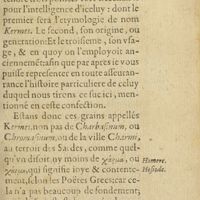 pour l'intelligence d'iceluy: dont le
premier sera l'etymologie de nom
Kermes. Le second, son origine, ou
generation: Et le troisiéme, son vsa-
ge, & en quoy on l'employoit anciennemét: afin que par apres ie vo⁹
puisse representer en toute asseuran-
ce l'histoire particuliere de celuy
duquel nous tirons ce suc icy, men-
tionné en ceste confection.
Estans donc ces grains appellés
Kermes, non pas de Charbasinum, ou
ou de la ville Charmé,
au terroir des Sardes, comme quel-
qu'vn disoit, ny moins de ou
qui signifie ioye & contente-
ment, selon les Poëtes Grecs: car ce-
la n'a pas beaucoup de fondement;
Homere.
Hesiode.